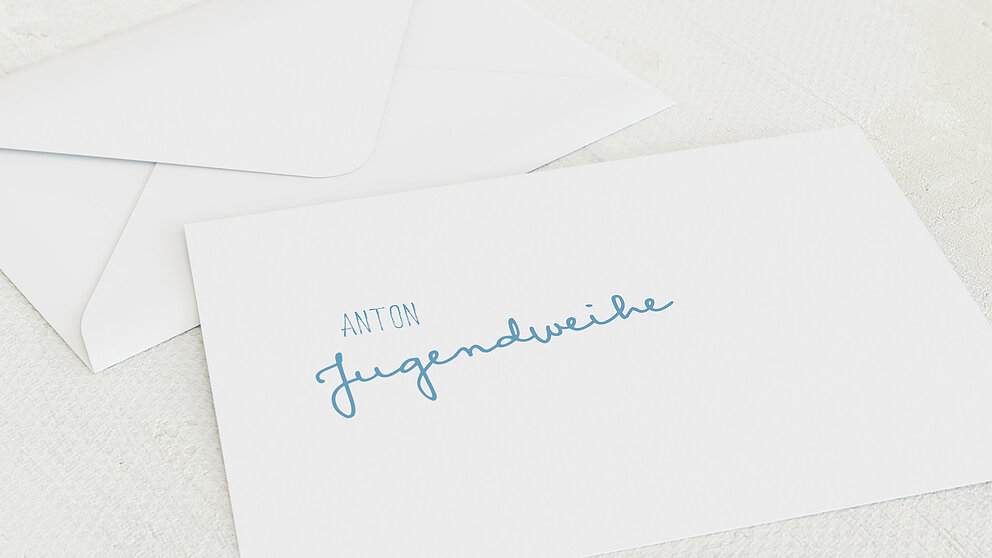 ANTON
Jugendweihe